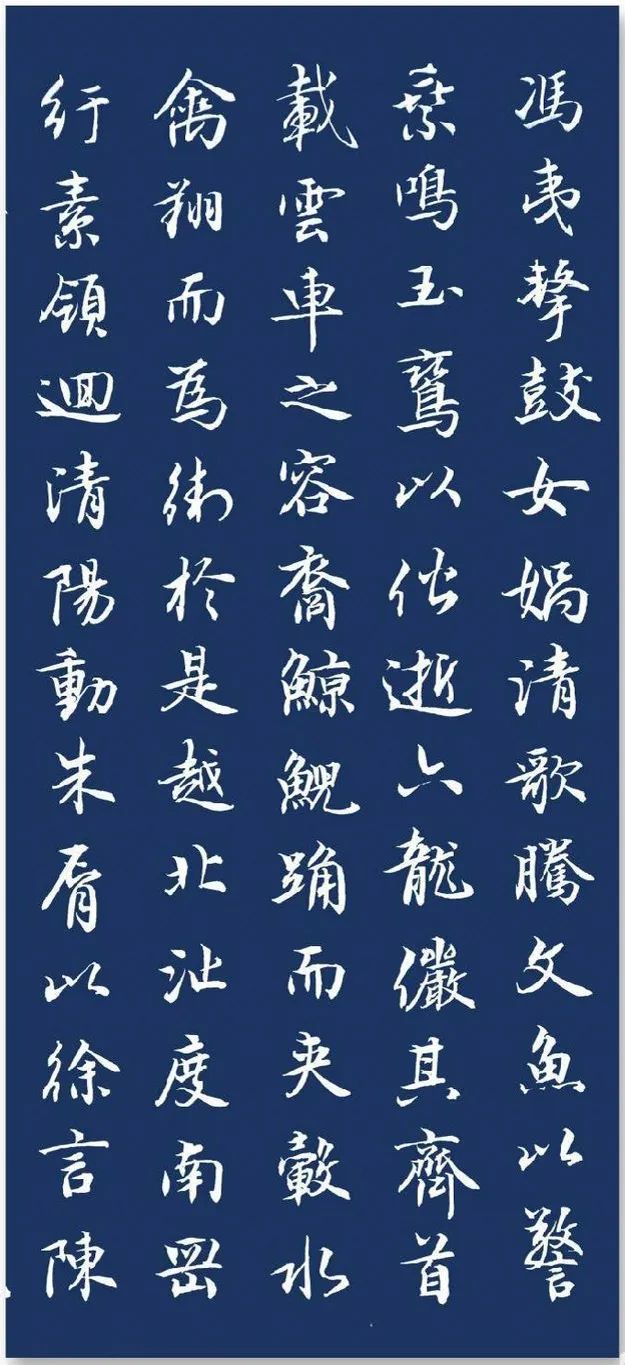 馮夷擊鼓女媧清歌騰文魚以警
乘鳴玉鸞以偕逝六龍儼其齊首
載雲車之容裔鯨鯢踊而夾轂水
禽翔而為衛於是越北沚度南岡
紆素領迴清陽動朱脣以徐言陳